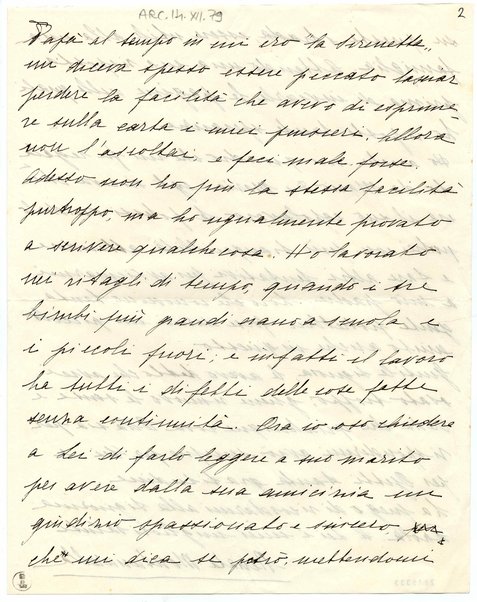 ARC. 14. XII. 79
2
Papà al tempo in cui ero "la sirenetta„
mi diceva spesso essere peccato lasciar
perdere la facilità che avevo di esprime-
re sulla carta i miei pensieri. Allora
non l'ascoltai, e feci male forse.
Adesso non ho più la stessa facilità
purtroppo, ma ho ugualmente provato
a scrivere qualchecosa. Ho lavorato
nei ritagli di tempo, quando i tre
bimbi più grandi erano a scuola e
i piccoli fuori; e infatti il lavoro
ha tutti i difetti delle cose fatte
senza continuità. Ora io oso chiedere
a Lei di farlo leggere a suo marito
per avere dalla sua amicizia un
giudizio spassionato e sincero
che mi dica se potrò, mettendomi